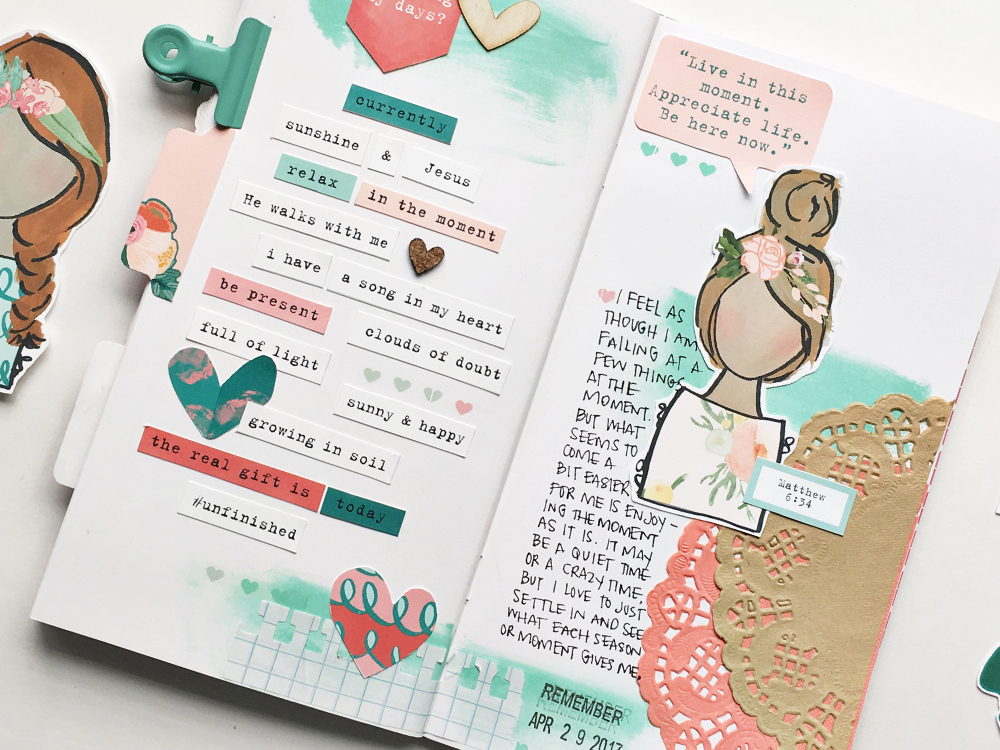 days?
currently
sunshine & Jesus
relax in the moment
He walks with me
i have a song in my heart
be present
full of light clouds of doubt
sunny & happy
growing in soil
the real gift is today
#unfinished
“Live in this
moment.
Appreciate life.
Be here now.”
I FEEL AS
THOUGH I AM
FAILING AT A
FEW THINGS
AT THE
MOMENT.
BUT WHAT
SEEMS TO
COME A
BIT EASIER
FOR ME IS ENJOY-
ING THE MOMENT
AS IT IS. IT MAY
BE A QUIET TIME
OR A CRAZY TIME,
BUT I LOVE TO JUST
SETTLE IN AND SEE
WHAT EACH SEASON
OR MOMENT GIVES ME.
Matthew
6:34
REMEMBER
APR 29 2017